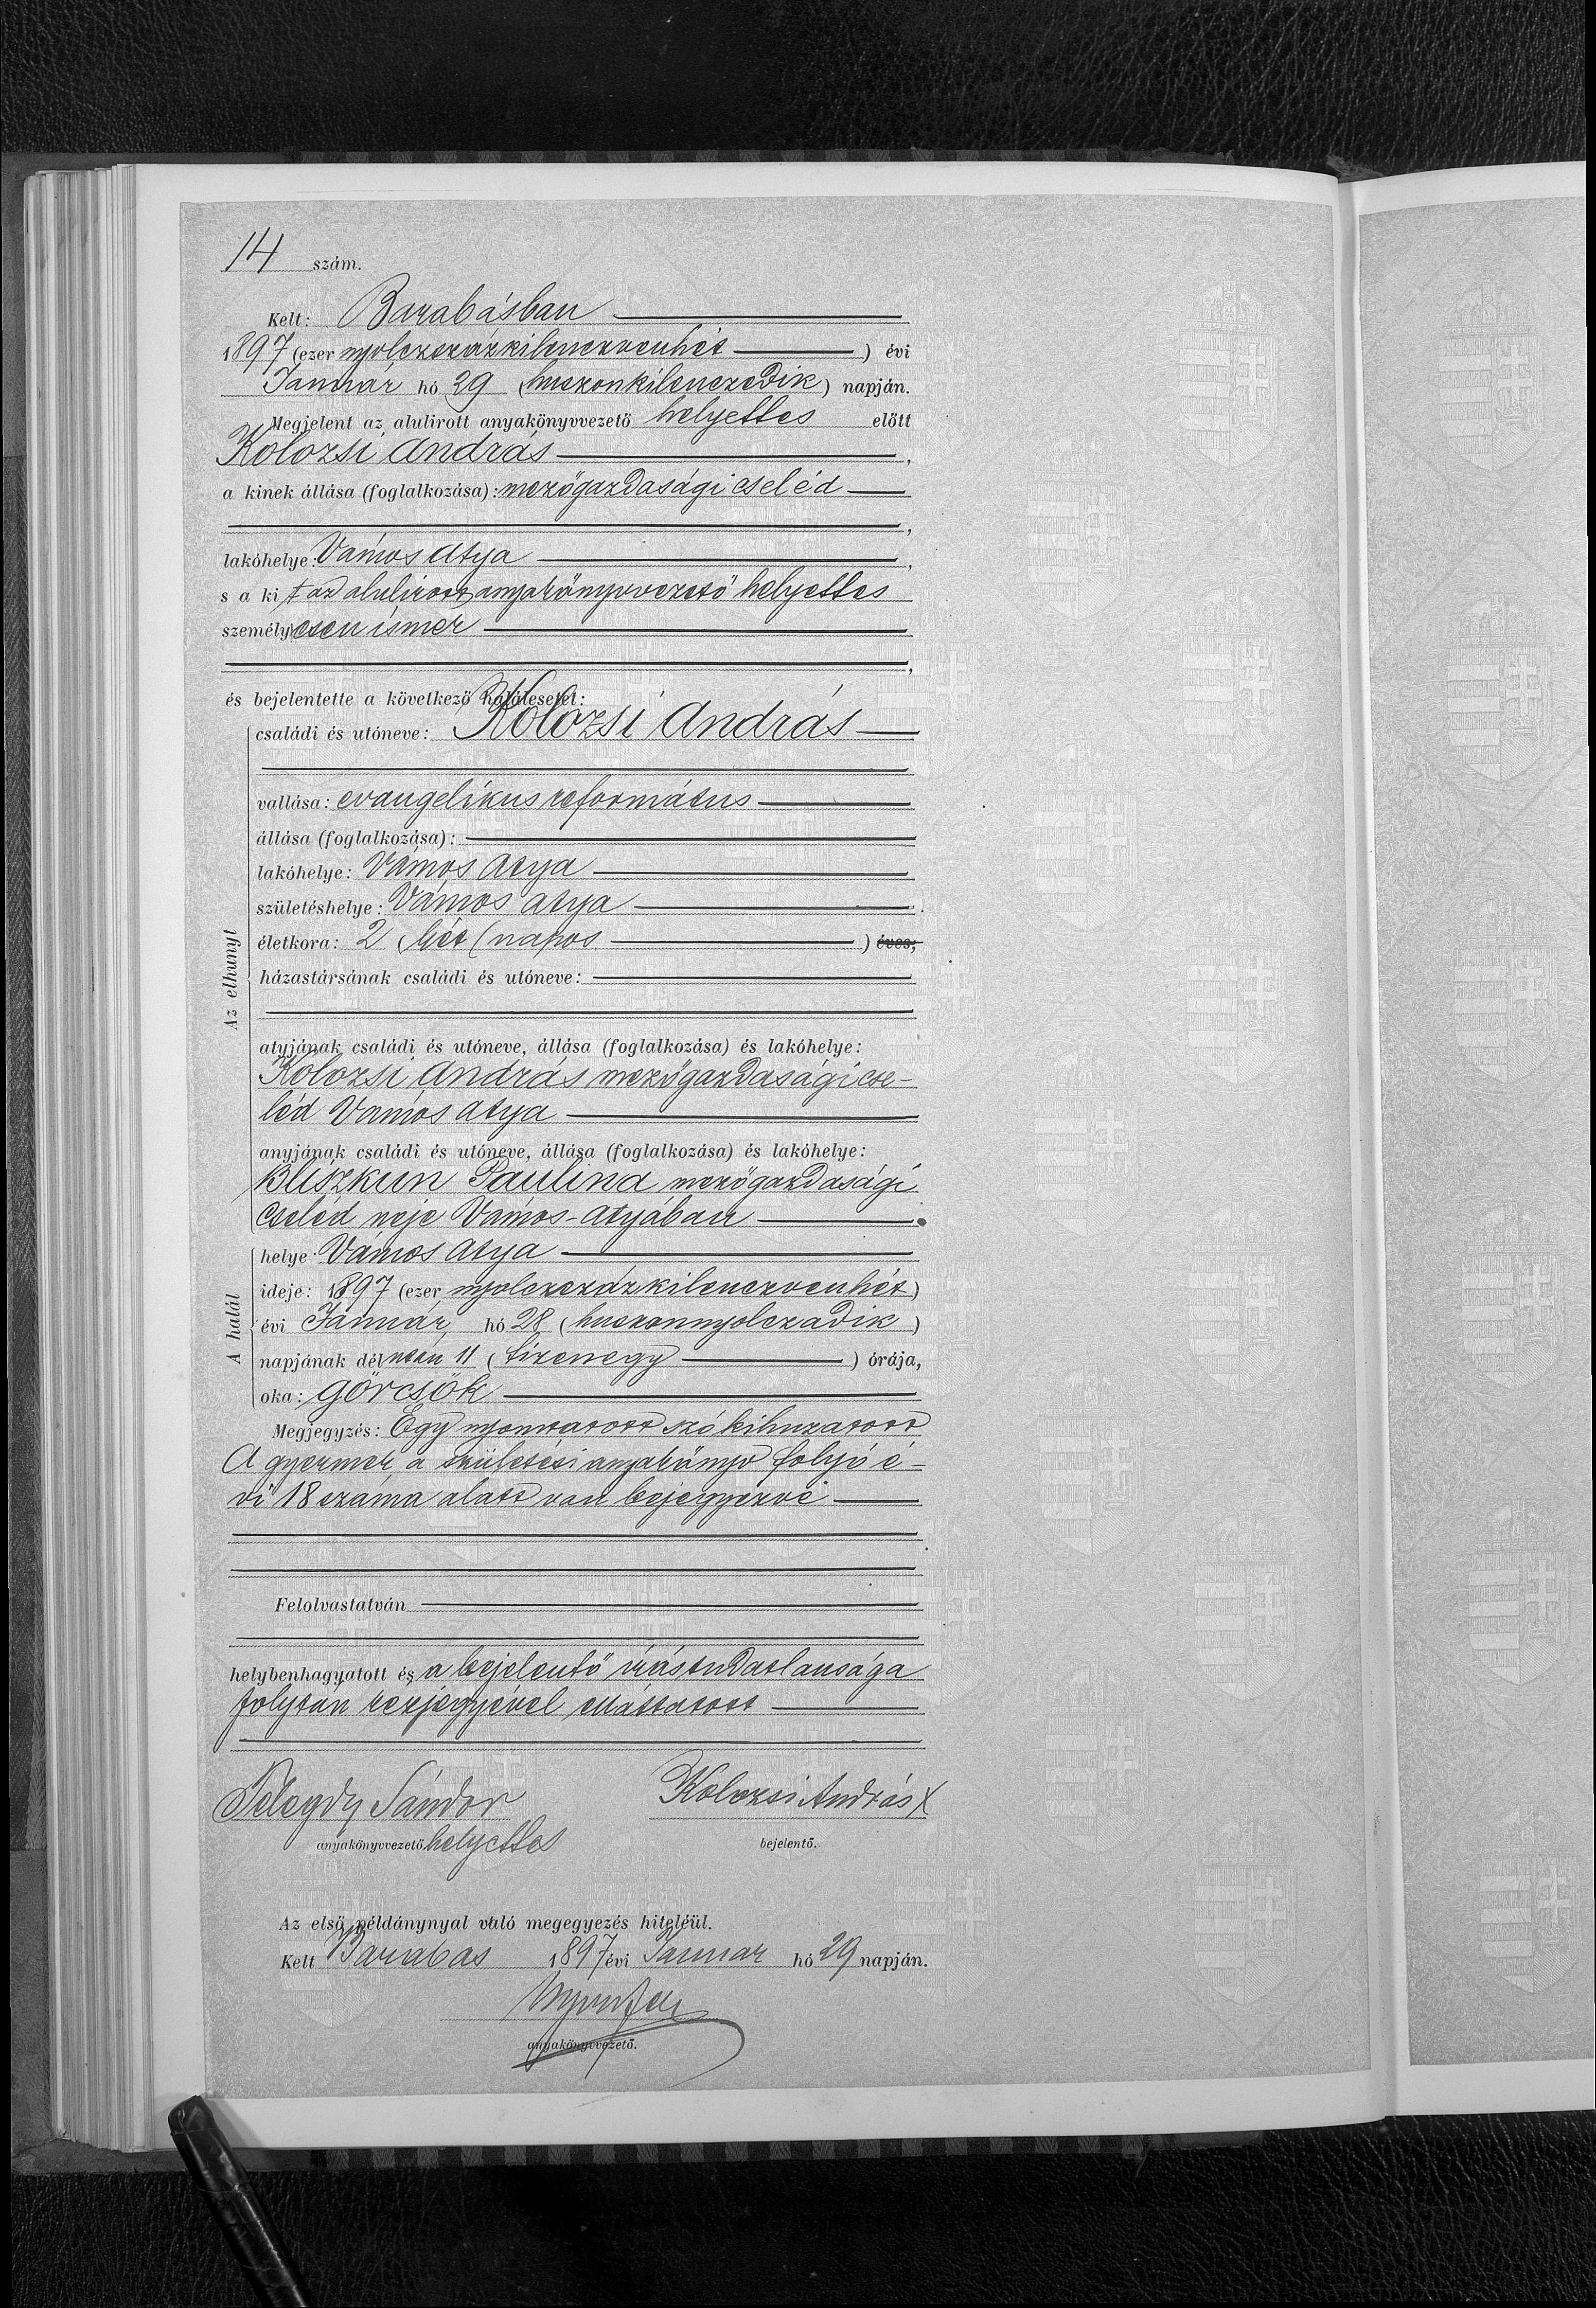 14 szám.
Kelt: Barabásban
1897 (ezer nyolczszázkilenczvenhét) évi
Január hó 29 (huszonkilenczedik) napján.
Megjelent az alulirott anyakönyvvezető helyettes előtt
Kolozsi András,
a kinek állása (foglalkozása): mezőgazdasági cseléd
,
lakóhelye: Vámos Atya,
s a ki t az alulirott anyakönyvvezető helyettes
személyesen ismer
,
és bejelentette a következő halálesetet:
Az elhunyt
családi és utóneve: Kolozsi András
vallása: evangelikus református
állása (foglalkozása):
lakóhelye: Vámos Atya
születéshelye: Vámos atya
életkora: 2 (két (napos) éves;
házastársának családi és utóneve:
atyjának családi és utóneve, állása (foglalkozása) és lakóhelye:
Kolozsi András mezőgazdasági cse-
léd Vámos atya
anyjának családi és utóneve, állása (foglalkozása) és lakóhelye:
Bliszkun Paulina mezőgazdasági
cseléd neje Vámos-atyában
A halál
helye: Vámos Atya
ideje: 1897 (ezer nyolczszázkilenczvenhét)
évi Január hó 28 (huszonnyolczadik)
napjának délután 11 (tizenegy) órája,
oka: görcsök
Megjegyzés: Egy nyomtatott szó kihuzatott
A gyermek a születési anyakönyv folyó é-
vi 18 száma alatt van bejegyezve
Felolvastatván
helybenhagyatott és a bejelentő irástudatlansága
folytán kézjegyével elláttatott
Telegdy Sándor Kolozsi András X
anyakönyvvezető helyettes bejelentő.
Az első példánynyal való megegyezés hiteléül.
Kelt Barabás 1897 évi Január hó 29 napján.
anyakönyvvezető.